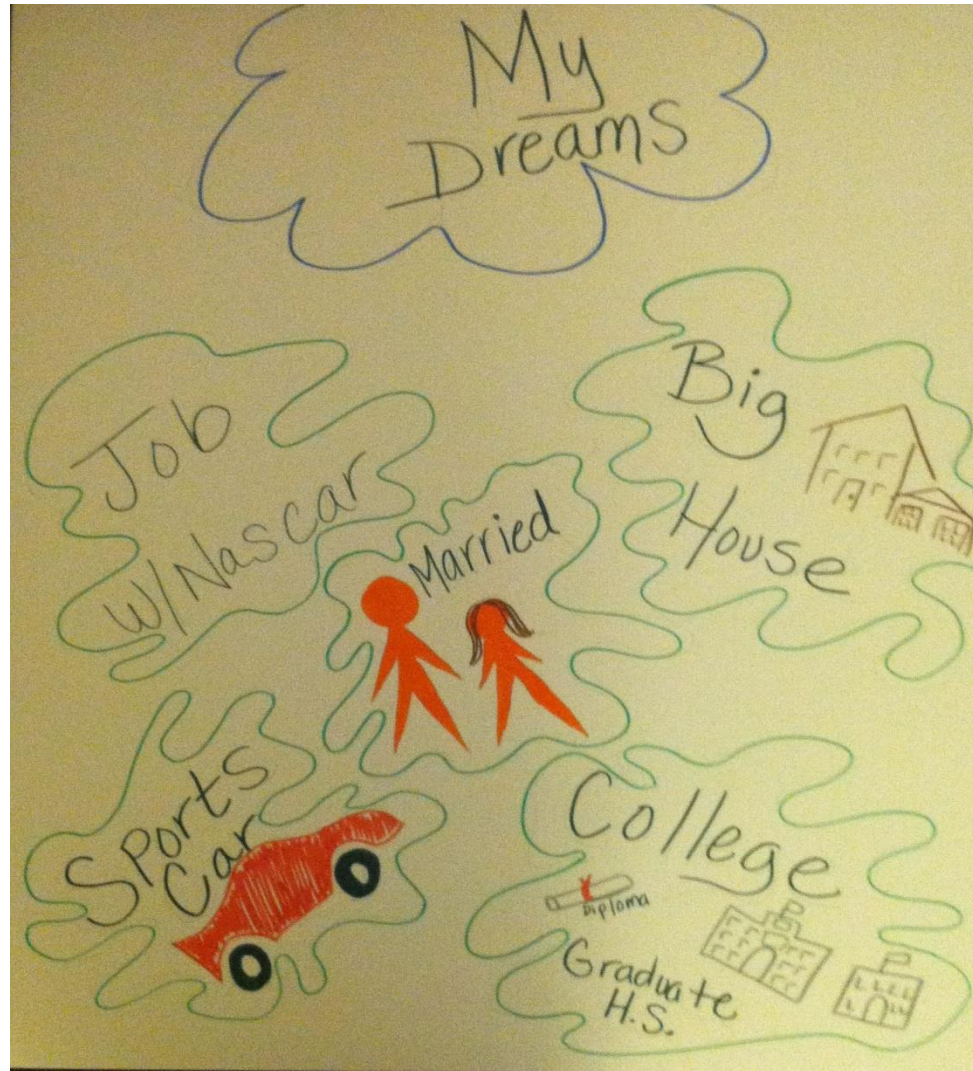 My
Dreams
Job
W/Nascar
Big
House
Married
Sports
Car
College
Diploma
Graduate
H.S.